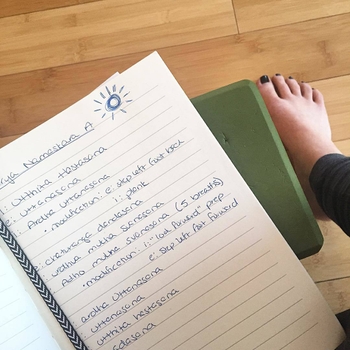 Namaskara A
: Utthita Hastasana
: uttanasana
: Ardha Uttanasana
• modification: e: step left foot back
i: plank
: chaturanga dandasana
: urdhva mukha svanasana
: Adho mukha svanasana (5 breaths)
• modification: i: "look forward" prep
e: step left foot forward
: ardha uttanasana
: uttanasana
: utthita hastasana